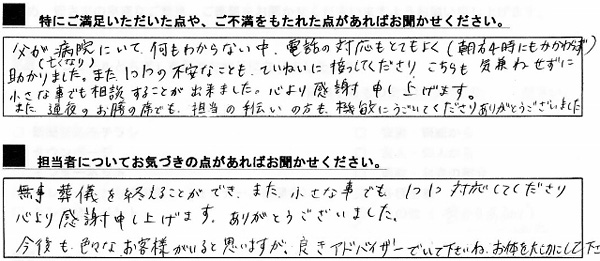 特にご満足いただいた点や、ご不満をもたれた点があればお聞かせください。
父が病院にいて、何もわからない中、電話の対応もとてもよく(朝方4時にもかかわらず)
(亡くなり)
助かりました。また1つ1つの不安なことも、ていねいに接してくださり、こちらも気兼ねせずに
小さな事でも相談することが出来ました。心より感謝申し上げます。
また、通夜のお膳の席でも、担当の手伝いの方も、機敏にうごいてくださりありがとうございました
担当者についてお気づきの点があればお聞かせください。
無事葬儀を終えることができ、また、小さな事でも、1つ1つ対応してくださり
心より感謝申し上げます。ありがとうございました。
今後も色々なお客様がいると思いますが、良きアドバイザーでいて下さいね。お体を大切にして下